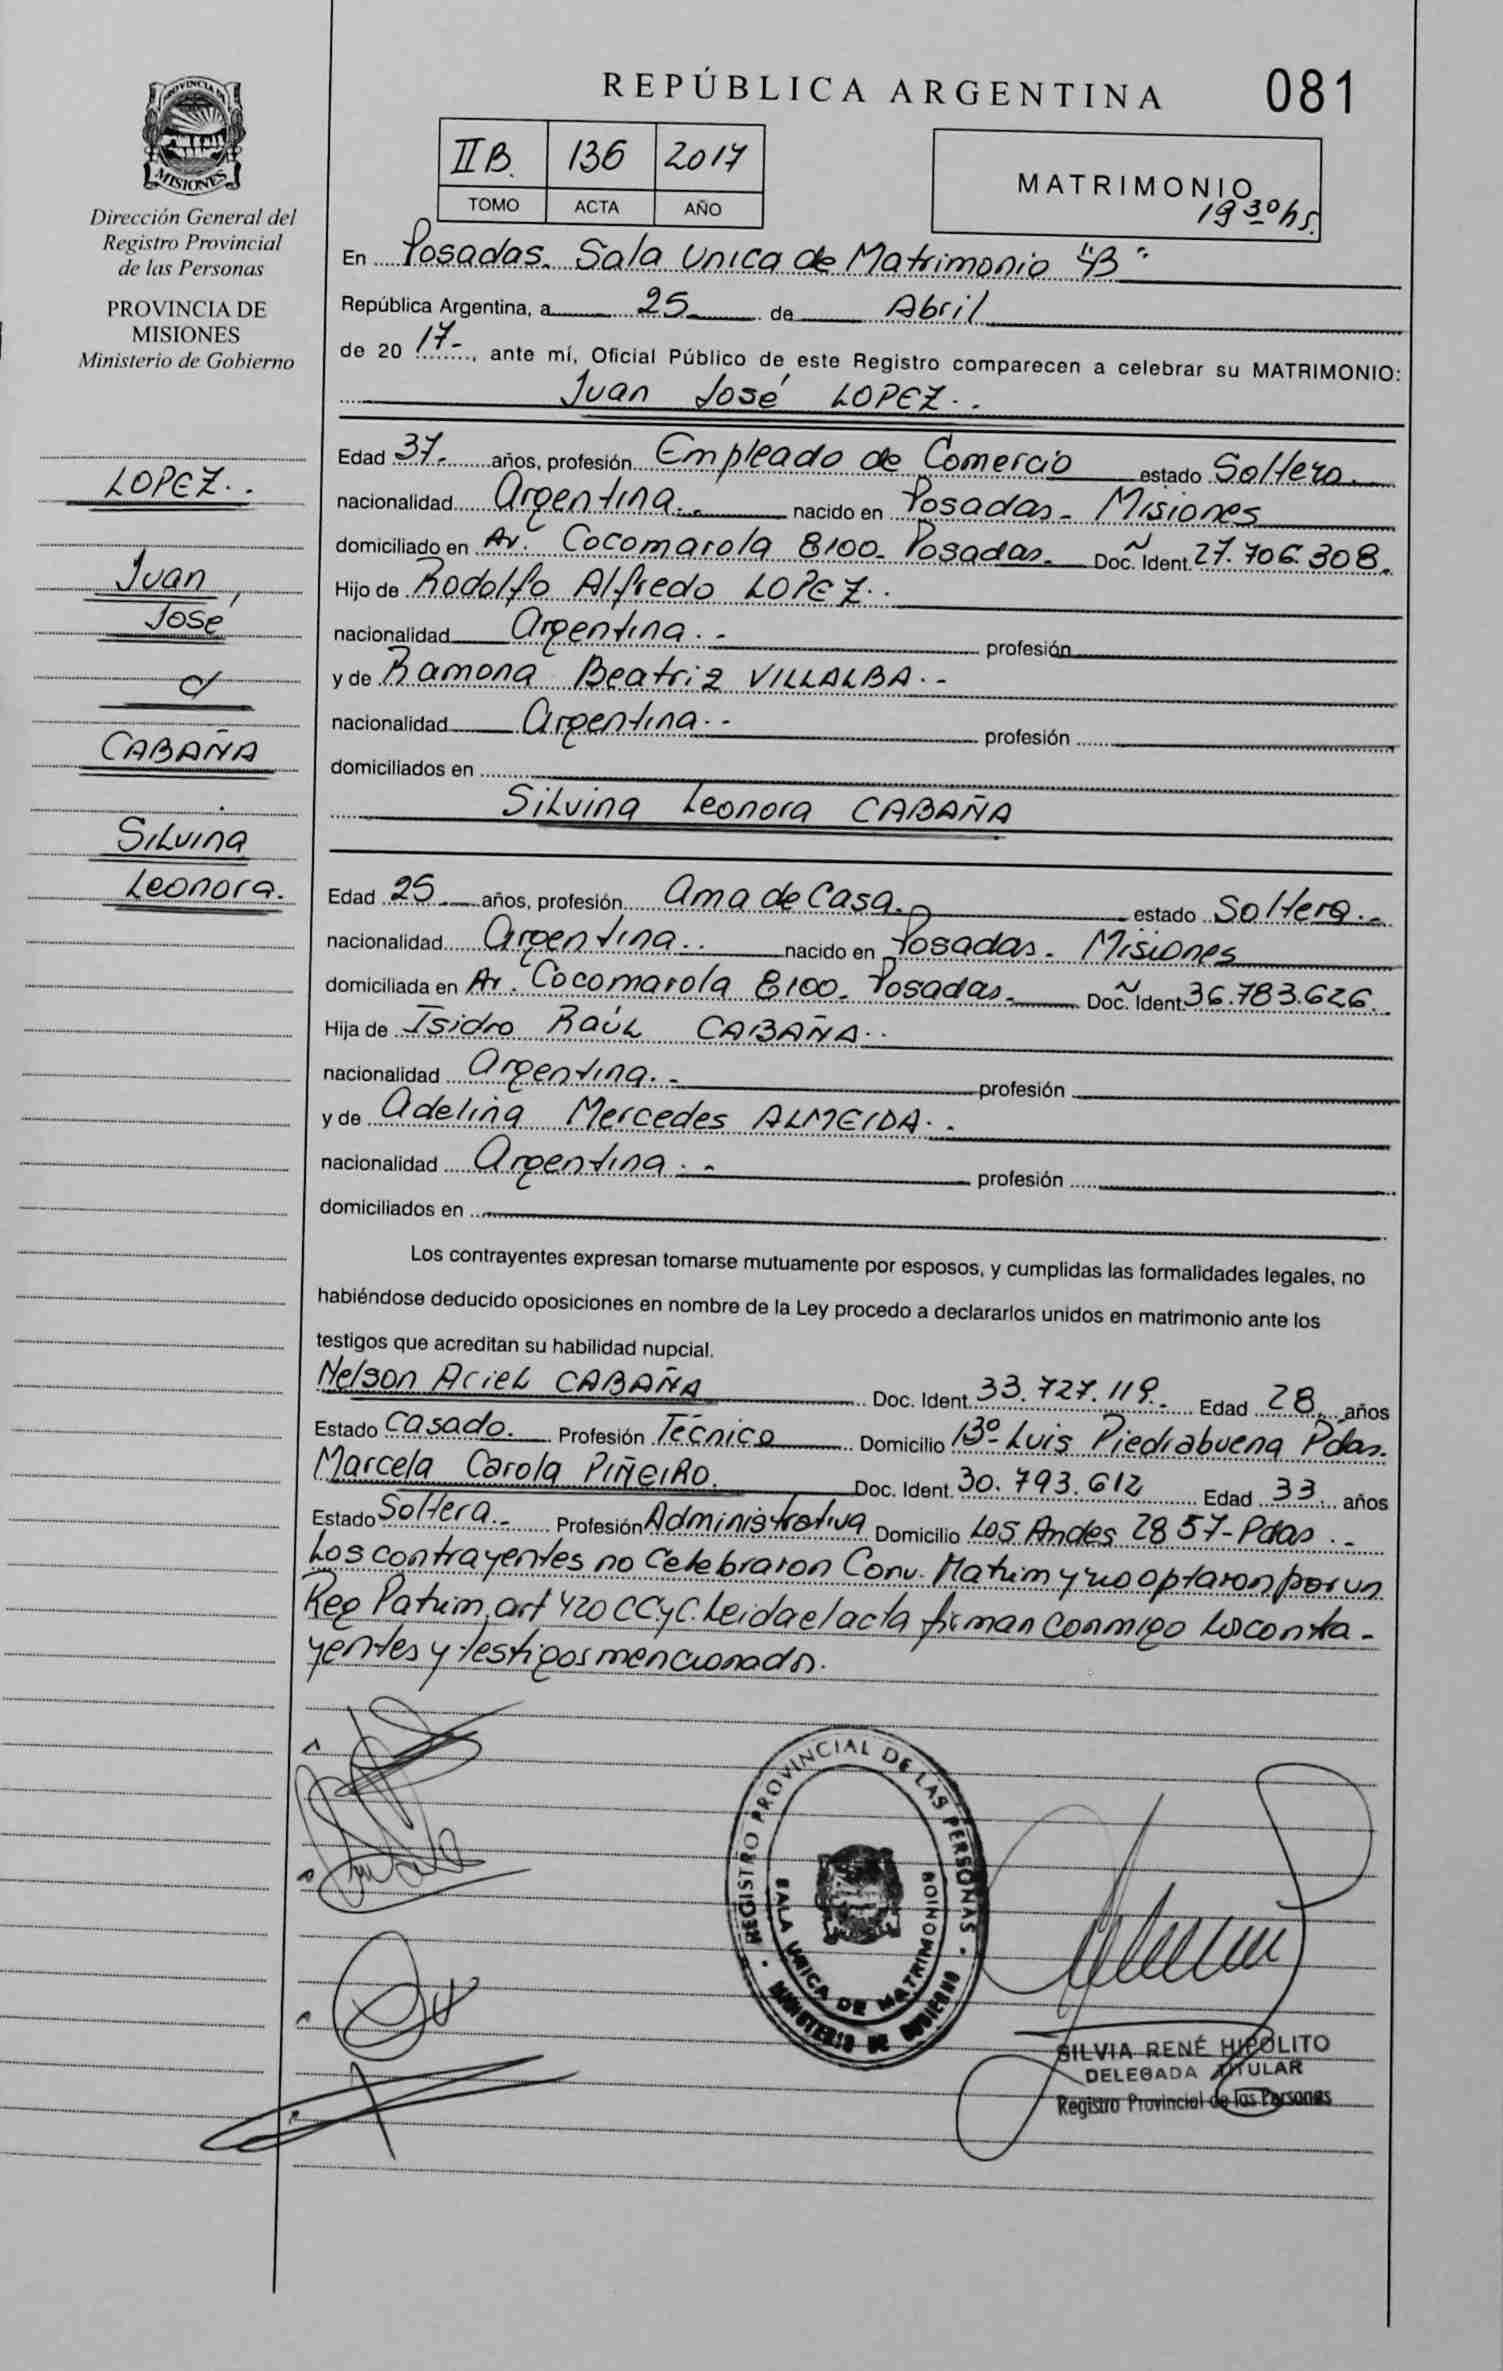 REPÚBLICA ARGENTINA
081
PROVINCIA DE
MISIONES
Dirección General del
Registro Provincial
de las Personas
PROVINCIA DE
MISIONES
Ministerio de Gobierno
II B. 136 2017
TOMO ACTA AÑO
MATRIMONIO
19 30 hs.
En Posadas. Sala Unica de Matrimonio "B"
República Argentina, a 25 de Abril
de 20 17-, ante mí, Oficial Público de este Registro comparecen a celebrar su MATRIMONIO:
Juan José LOPEZ..
LOPEZ..
Juan
José
c/
CABAÑA
Silvina
Leonora.
Edad 37. años, profesión Empleado de Comercio estado Soltero.
nacionalidad Argentina.. nacido en Posadas - Misiones
domiciliado en Av. Cocomarola 8100- Posadas. Doc. Ident. 27.706.308.
Hijo de Rodolfo Alfredo LOPEZ..
nacionalidad Argentina.- profesión
y de Ramona Beatriz VILLALBA.-
nacionalidad Argentina.- profesión
domiciliados en
Silvina Leonora CABAÑA
Edad 25 años, profesión Ama de Casa. estado Soltera.-
nacionalidad Argentina.. nacido en Posadas - Misiones
domiciliada en Av. Cocomarola 8100- Posadas.- Doc. Ident. 36.783.626.
Hija de Isidro Raúl CABAÑA..
nacionalidad Argentina.- profesión
y de Adelina Mercedes ALMEIDA..
nacionalidad Argentina.- profesión
domiciliados en
Los contrayentes expresan tomarse mutuamente por esposos, y cumplidas las formalidades legales, no
habiéndose deducido oposiciones en nombre de la Ley procedo a declararlos unidos en matrimonio ante los
testigos que acreditan su habilidad nupcial.
Nelson Ariel CABAÑA Doc. Ident. 33.727.119.- Edad 28 años
Estado Casado. Profesión Técnico Domicilio Bº Luis Piedrabuena Pdas.
Marcela Carola PIÑEIRO. Doc. Ident. 30.793.612 Edad 33 años
Estado Soltera.- Profesión Administrativa Domicilio Los Andes 2857-Pdas.-
Los contrayentes no Celebraron Conv. Matrim y no optaron por un
Reg Patrim, art 420 CCyC. Leida el acta firman conmigo los contra-
yentes y testigos mencionados.
REGISTRO PROVINCIAL DE LAS PERSONAS
SALA UNICA DE MATRIMONIOS
MINISTERIO DE GOBIERNO
SILVIA RENÉ HIPOLITO
DELEGADA TITULAR
Registro Provincial de las Personas